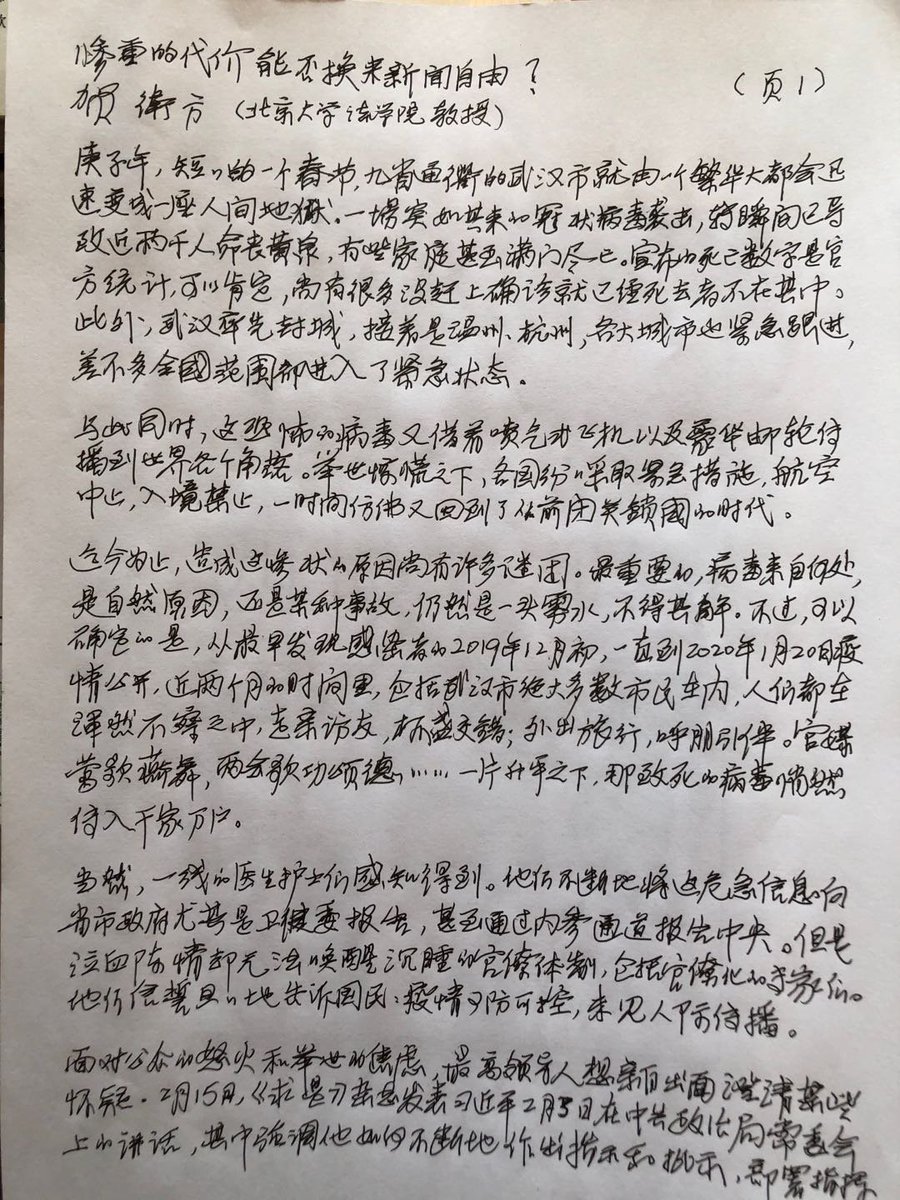 惨重的代价能否换来新闻自由？
贺衛方（北京大学法学院教授）
（页1）
庚子年，短短的一个春节，九省通衢的武汉市就由一个繁华大都会迅
速变成一座人间地狱。一场突如其来的冠状病毒袭击，转瞬间已导
致近两千人命丧黄泉，有些家庭甚至满门尽亡。宣布的死亡数字是官
方统计，可以肯定，尚有很多没赶上确诊就已经死去者不在其中。
此外，武汉率先封城，接着是温州、杭州，各大城市也紧急跟进，
差不多全國范围都进入了紧急状态。
与此同时，这恐怖的病毒又借着喷气式飞机以及豪华邮轮传
播到世界各个角落。举世惊慌之下，各国纷纷采取紧急措施，航空
中止，入境禁止，一时间仿佛又回到了从前闭关鎖國的时代。
迄今为止，造成这惨状的原因尚有许多谜团。最重要的，病毒来自何处，
是自然原因，还是某种事故，仍然是一头雾水，不得其解。不过，可以
确定的是，从最早发现感染者的2019年12月初，一直到2020年1月20日疫
情公开，近两个月的时间里，包括武汉市绝大多数市民在内，人们都在
浑然不察之中，走亲访友，杯盏交错；外出旅行，呼朋引伴。官媒
莺歌燕舞，两会歌功颂德……一片升平之下，那致死的病毒悄然
传入千家万户。
当然，一线的医生护士们感知得到。他们不断地将这危急信息向
省市政府尤其是卫健委报告，甚至通过内参通道报告中央。但是
泣血陈情却无法唤醒沉睡的官僚体制，包括官僚化的专家们。
他们信誓旦旦地告诉国民：疫情可防可控，未见人际传播。
面对公众的怒火和举世的焦虑，最高领导人想亲自出面澄清某些
怀疑。2月15日，《求是》杂志发表习近平2月3日在中共政治局常委会
上的讲话，其中强调他如何不断地作出指示和批示，部署指挥